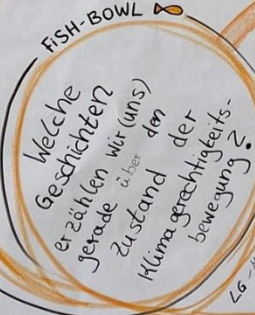 FISH-BOWL
Welche
Geschichten
erzählen wir (uns)
gerade über den
Zustand der
Klimagerechtigkeits-
bewegung?